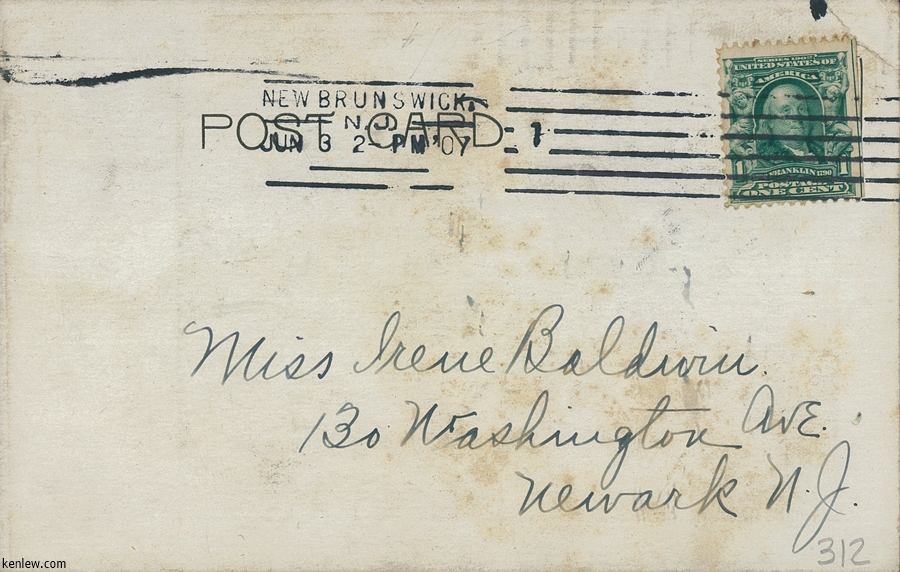 SERIES 1902
UNITED STATES OF
AMERICA
NEW BRUNSWICK,
N.J.
POST CARD
JUN 3 2-PM '07
1
1 1
FRANKLIN 1790
POSTAGE
ONE CENT
Miss Irene Baldwin.
130 Washington Ave.
Newark N.J.
312
kenlew.com